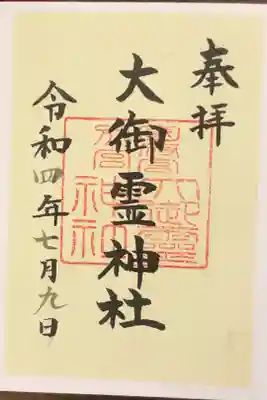 奉拝
大御霊神社
令和四年七月九日